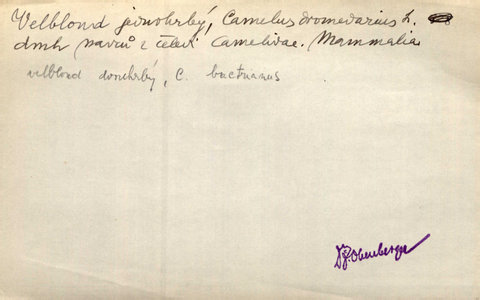 Velbloud jednohrbý, Camelus dromedarius L.
druh savců z čeledi Camelidae. Mammalia.
velbloud dvouhrbý, C. bactrianus
Dr. J. Obenberger